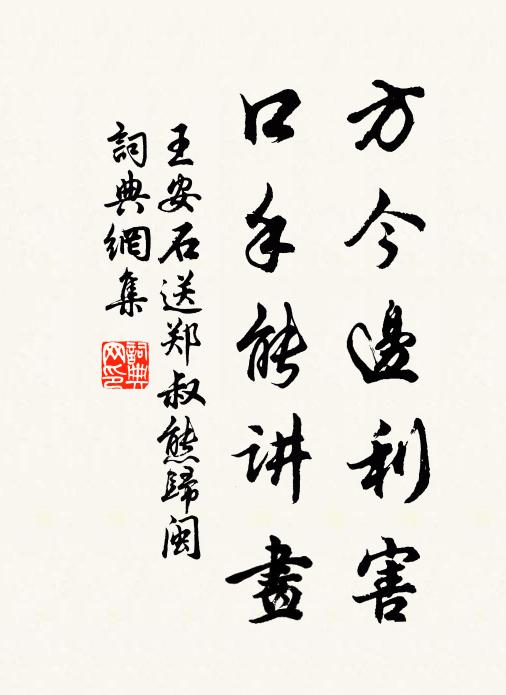 方今邊利害
口手能讲畫
王安石送郑叔熊歸闽
詞典網集
詞典網印